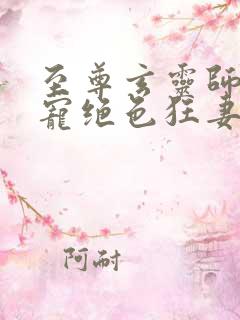 至尊玄靈師
寵绝色狂妻
阿耐